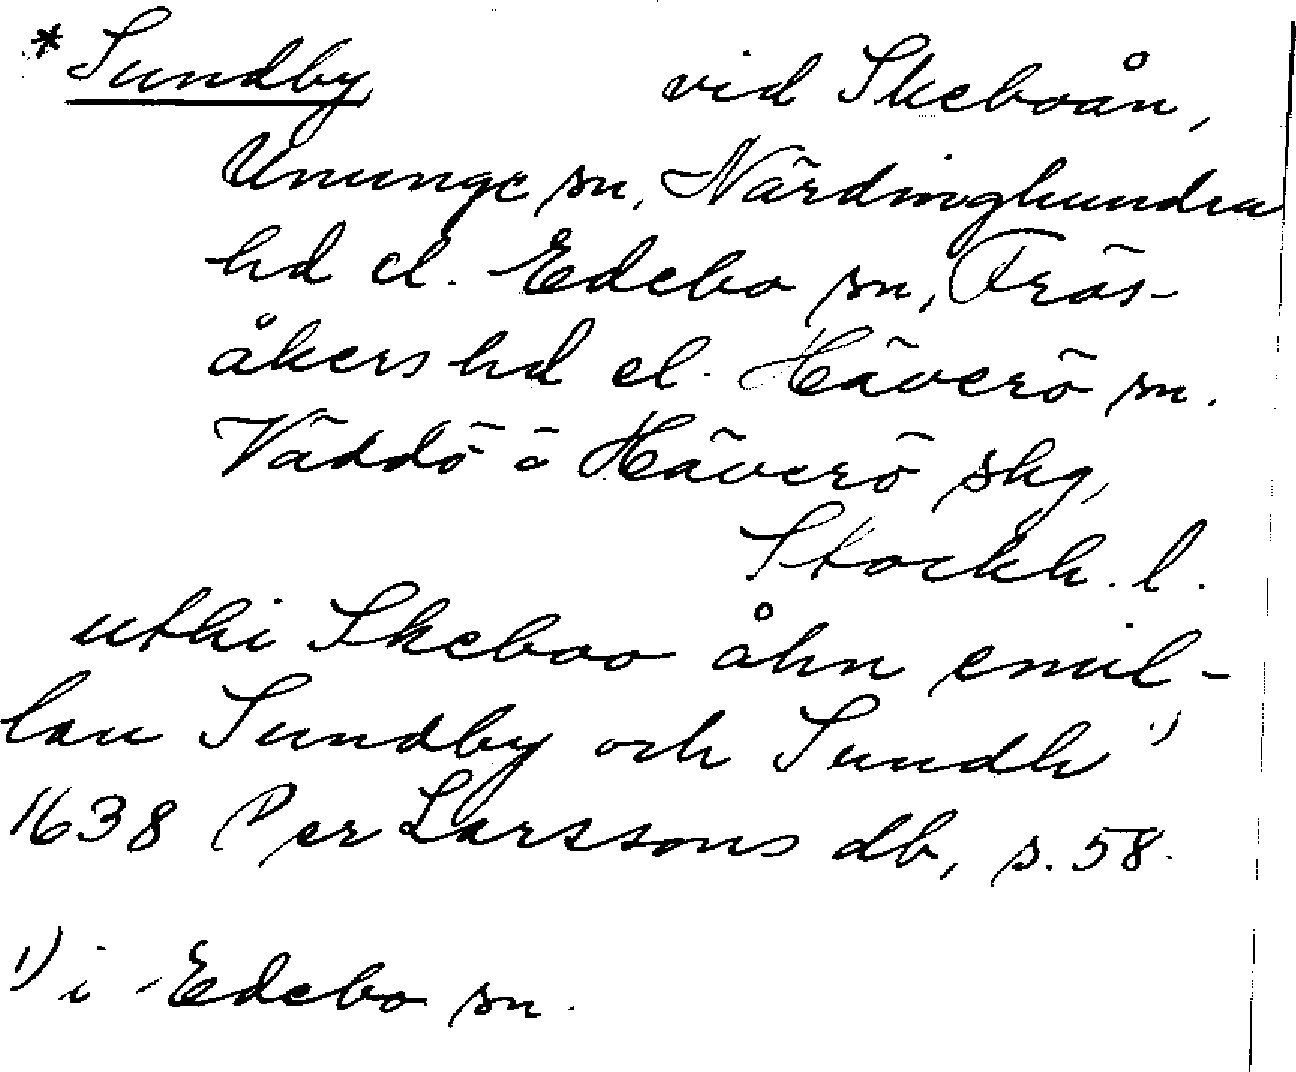 * Sundby vid Skeboån,
Ununge sn, Närdinghundra
hd el. Edebo sn, Frös-
åkers hd el. Häverö sn.
Väddö ö Häverö skg,
Stockh. l.
uthi Skeboo åhn emil-
lan Sundby och Sundh 1)
1638 Per Larssons db, s. 58.
1) i Edebo sn.